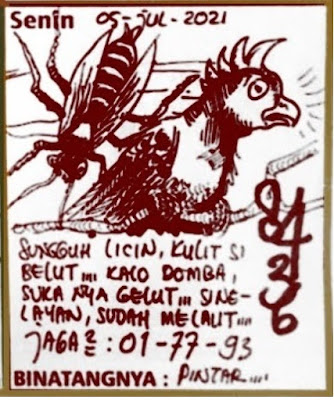 Senin 05-JUL-2021
SUNGGUH LICIN, KULIT SI
BELUT,,,, KALO DOMBA,
SUKA NYA GELUT,,,, SI NE-
LAYAN, SUDAH MELAUT,,,,
JAGA2 : 01-77-93
BINATANGNYA : PINTAR,,,,